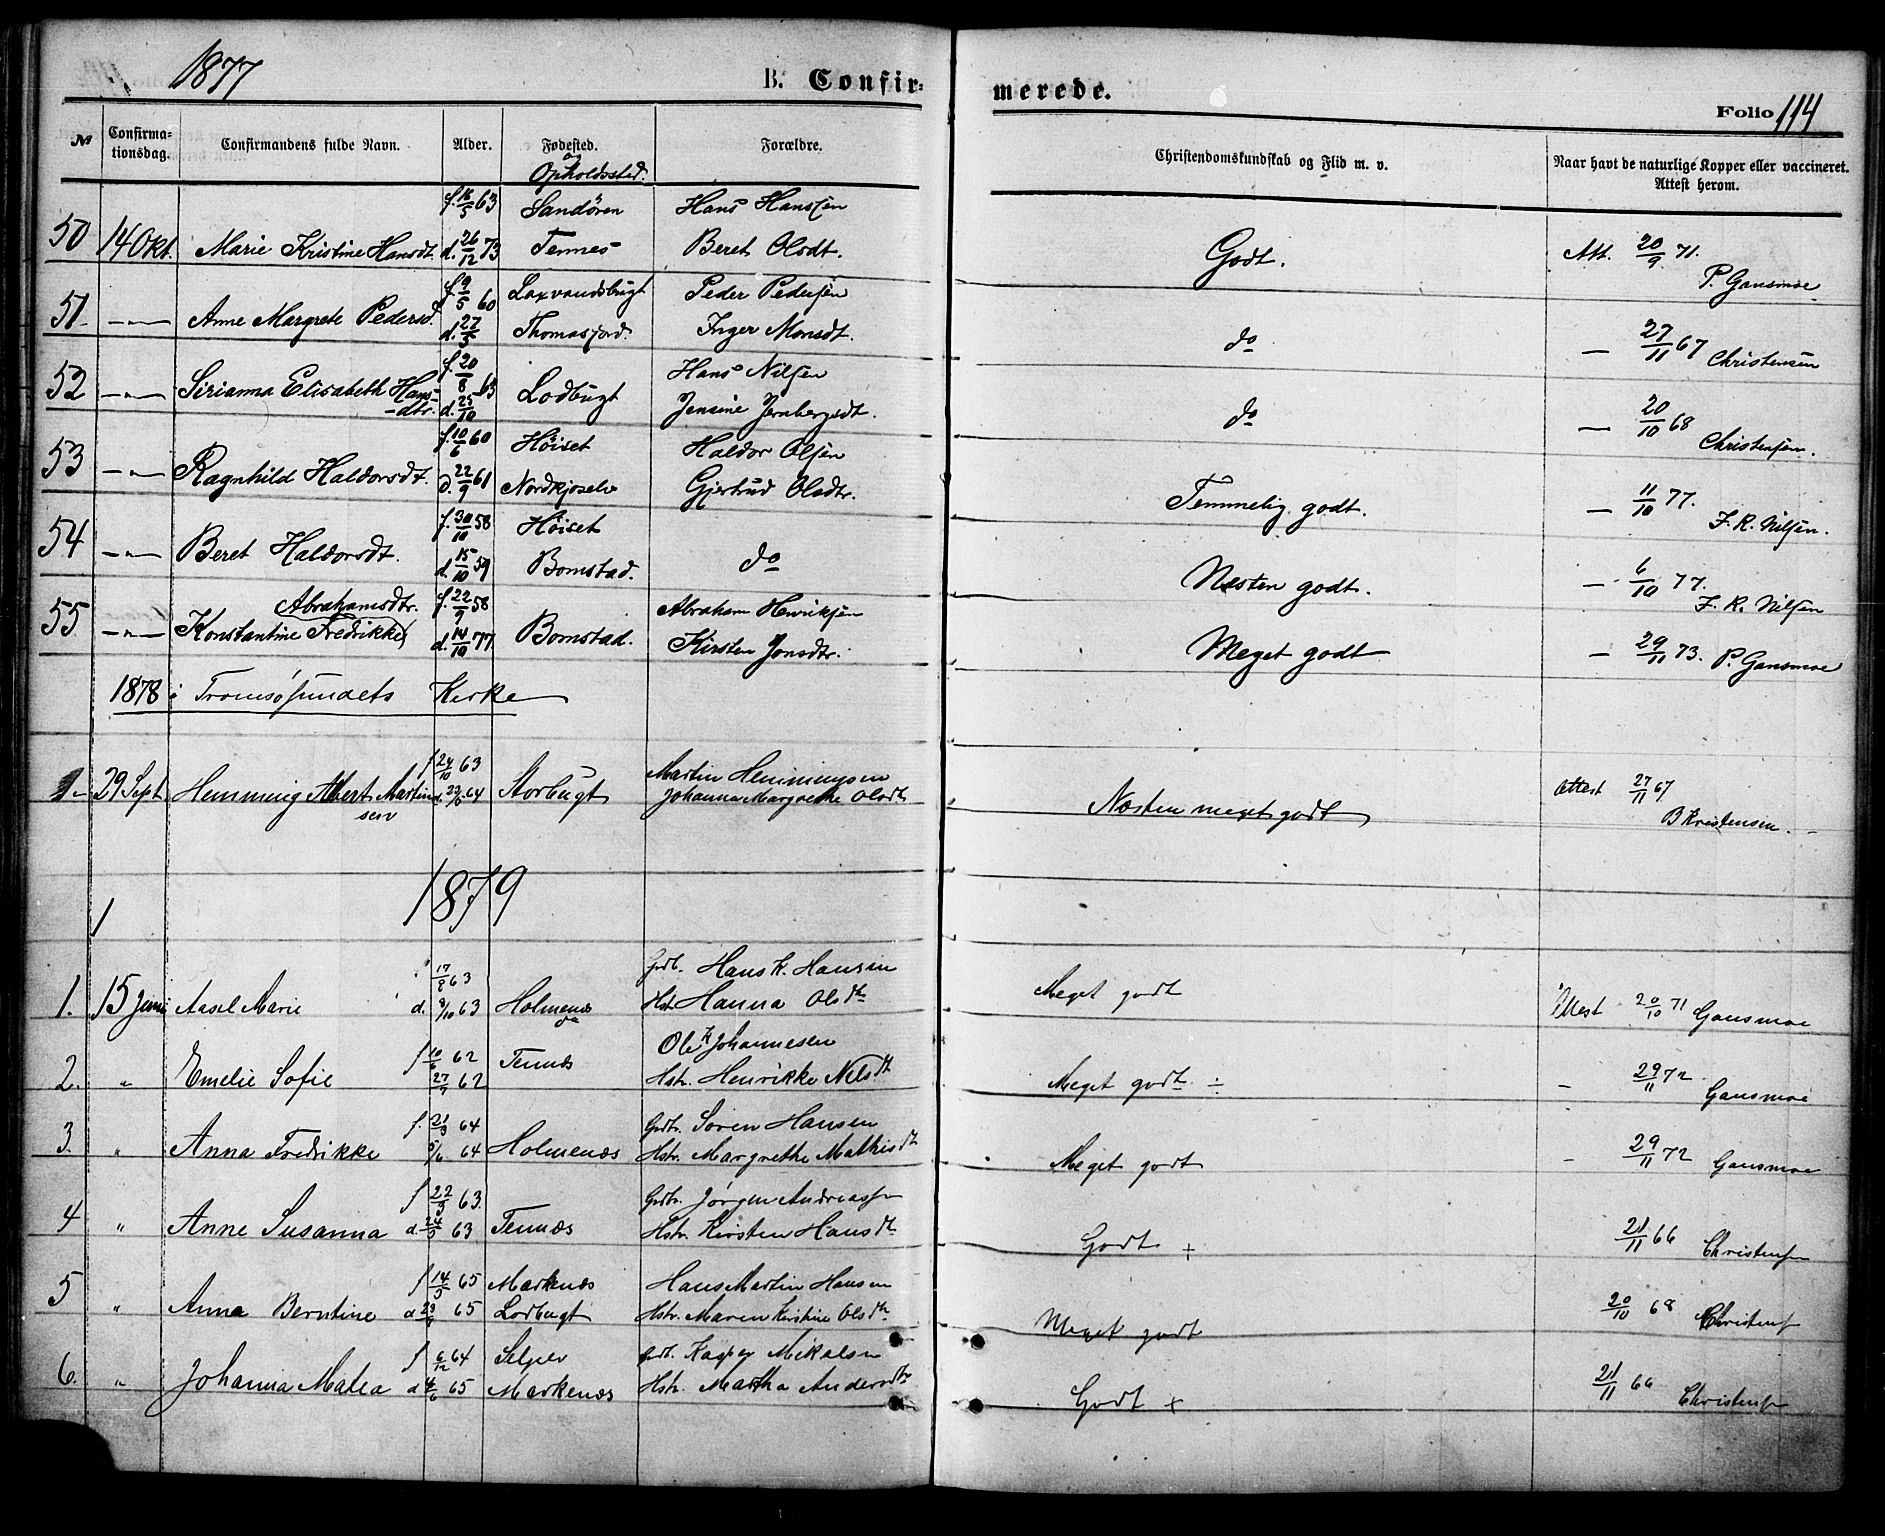 1877
B. Confirmerede.
Folio 114
№ Confirmationsdag. Confirmandens fulde Navn. Alder. Fødested. og Opholdssted. Forældre. Christendomskundskab og Flid m. v. Naar havt de naturlige Kopper eller vaccineret. Attest herom.
f. 16/5 63 Sandøren Hans Hansen
50 14 Okt. Marie Kristine Hansdt. d. 26/12 73 Tennes Beret Olsdt. Godt. Att. 20/9 71. P. Gansmoe
f. 9/5 60 Laxvandsbugt Peder Pedersen
51 —"— Anne Margrete Pedersd. d. 27/5 Thomasjord. Inger Monsdt. do — 27/11 67 Christensen
f. 20/8 63 Hans Nilsen
52 —"— Sirianna Elisabeth Hans-dtr. d. 25/10 Lodbugt Jensine Jernbergsdt. do — 20/10 68 Christensen.
f. 10/6 60 Høiset Haldor Olsen
53 —"— Ragnhild Haldorsdt. d. 22/9 61 Nordkjoselv Gjertrud Olsdtr. Temmelig godt. — 11/10 77. F. R. Nilsen.
f. 30/10 58 Høiset
54 —"— Beret Haldorsdt. d. 15/10 59 Bomstad. do Næsten godt. — 6/10 77. F. R. Nilsen
Abrahamsdtr. f. 22/9 58 Abraham Henriksen
55 —"— Konstantine Fredrikke d. 14/10 77. Bomstad. Kirsten Jonsdtr. Meget godt — 29/11 73. P. Gansmoe
1878 i Tromsøsundets Kirke
f 24/10 63 Martin Hemmingsen
1 29 Sept Hemming Albert Martinsen d. 29/6 64 Storbugt Johanna Margrethe Olsdt Næsten meget godt Attest 27/11 67 B Kristensen.
1879
1
17/8 63 Grdb. Hans K. Hansen
1. 15 Juni Aasel Marie d. 9/10 63 Holmenæs Hstr. Hanna Olsdt Meget godt Attest 20/10 71 Gansmoe
do
f 10/6 62 Tennæs Ole K Johannesen
2. " Emelie Sofie 27/7 62 Hstr. Henrikke Nilsdt Meget godt ÷ – 29/11 72 Gansmoe
f. 21/3 64 Grdb. Søren Hansen
3. " Anna Fredrikke 5/6 64 Holmenæs Hstr. Margrethe Mathisdt Meget godt – 29/11 72 Gansmoe
f 22/3 63. Grdbr. Jørgen Andreassen
4 " Anne Susanna d. 24/5 63 Tennæs Hstr. Kirsten Hansdt Godt + 21/11 66 Christensen
f 14/5 65 Markenæs Hans Martin Hansen
5 " Anna Berntine d 23/9 65 Lodbugt Hstr. Maren Kirstine Olsdtr. Meget godt 20/10 68 Christensen
f 6/12 64 Selnes Grdb. Kasper Mikalsen
6. " Johanna Matea d 4/6 65 Markenæs Hstr. Martha Andersdtr Godt + 21/11 66 Christensen